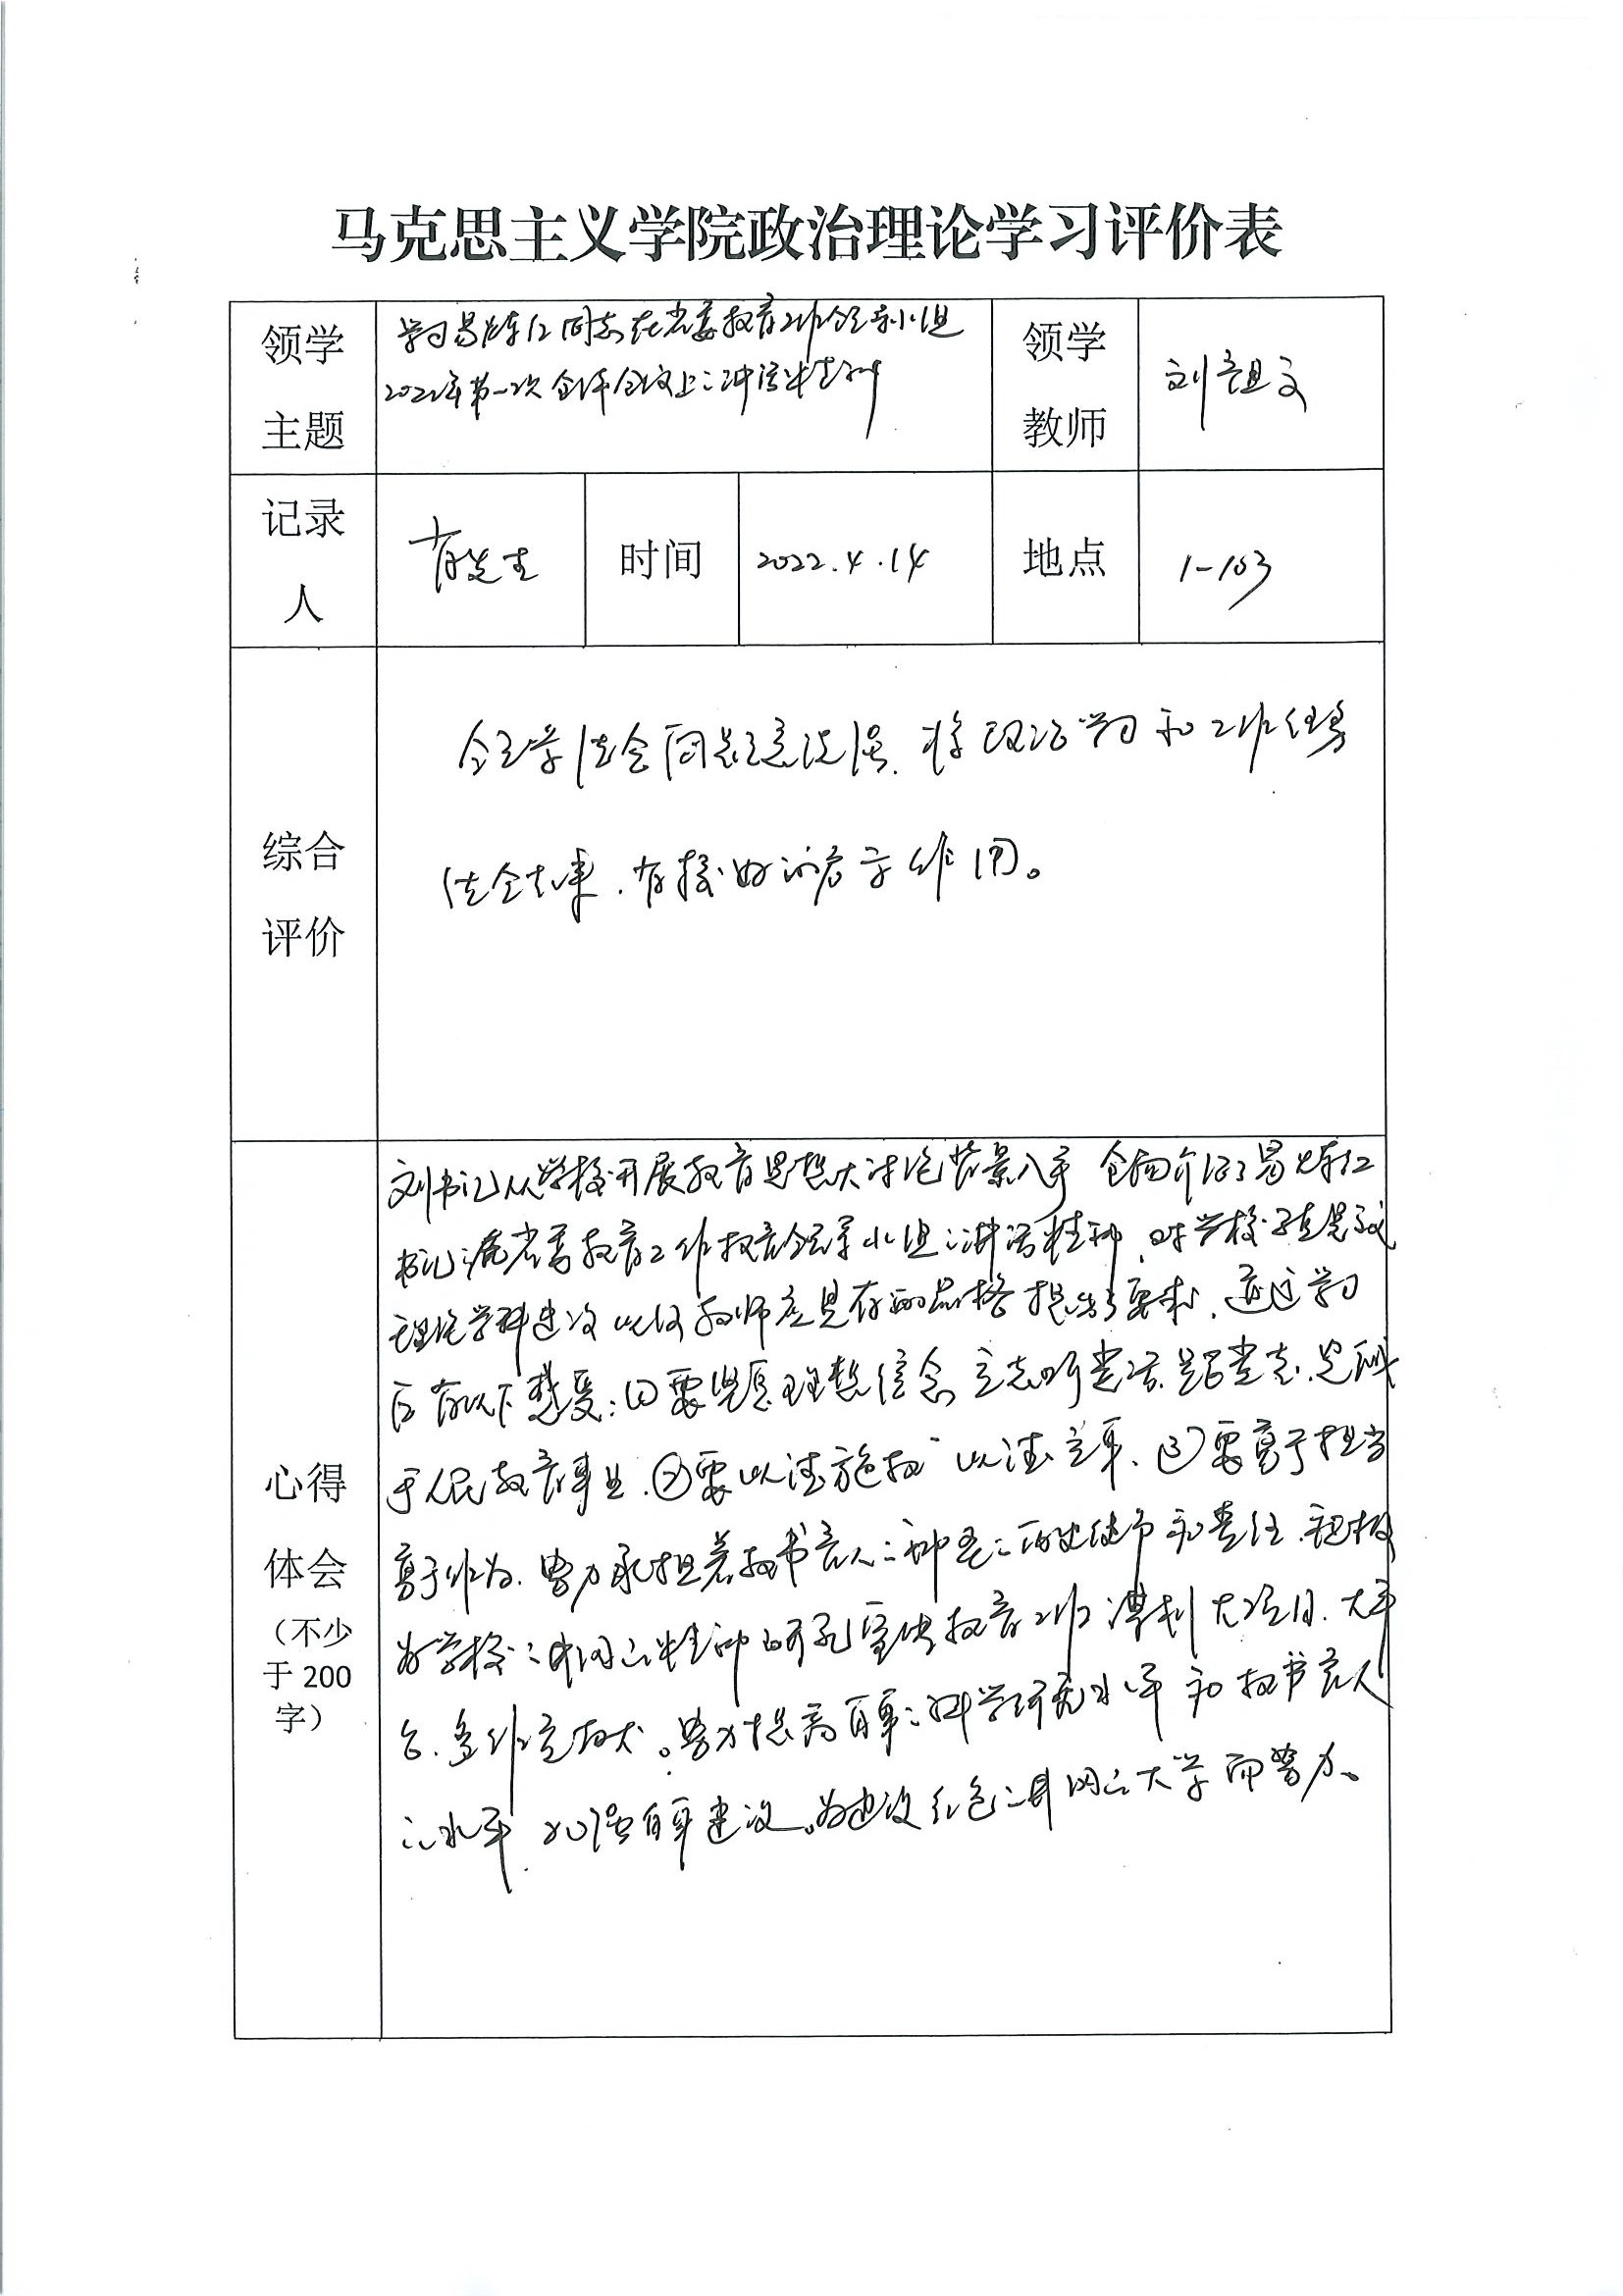 马克思主义学院政治理论学习评价表
领学主题
学习易炼红同志在省委教育工作领导小组
2022年第一次全体会议上之讲话精神
领学教师
刘祖文
记录人
肖发生
时间
2022.4.14
地点
1-103
综合评价
领学结合问题意识强,将政治学习和工作任务
结合起来,有较好的启示作用。
心得体会(不少于200字)
刘书记从学校开展教育思想大讨论背景入手 全面介绍了易炼红
书记在省委教育工作教育领导小组之讲话精神,对学校
理论学科建设以及教师应具有的品格提出了要求,通过学习
后有以下感受:①要坚定理想信念,立志听党话、跟党走,忠诚
于人民教育事业.②要以德施教 以德立身、③要勇于担当
勇于作为.努力承担着教书育人之神圣之历史使命和责任.积极
为学校之井冈山精神研究宣传教育工作谋划大项目、大平
台、多作贡献。努力提高自身之科学研究水平和教书育人
之水平,加强自身建设。为建设红色之井冈山大学而努力、